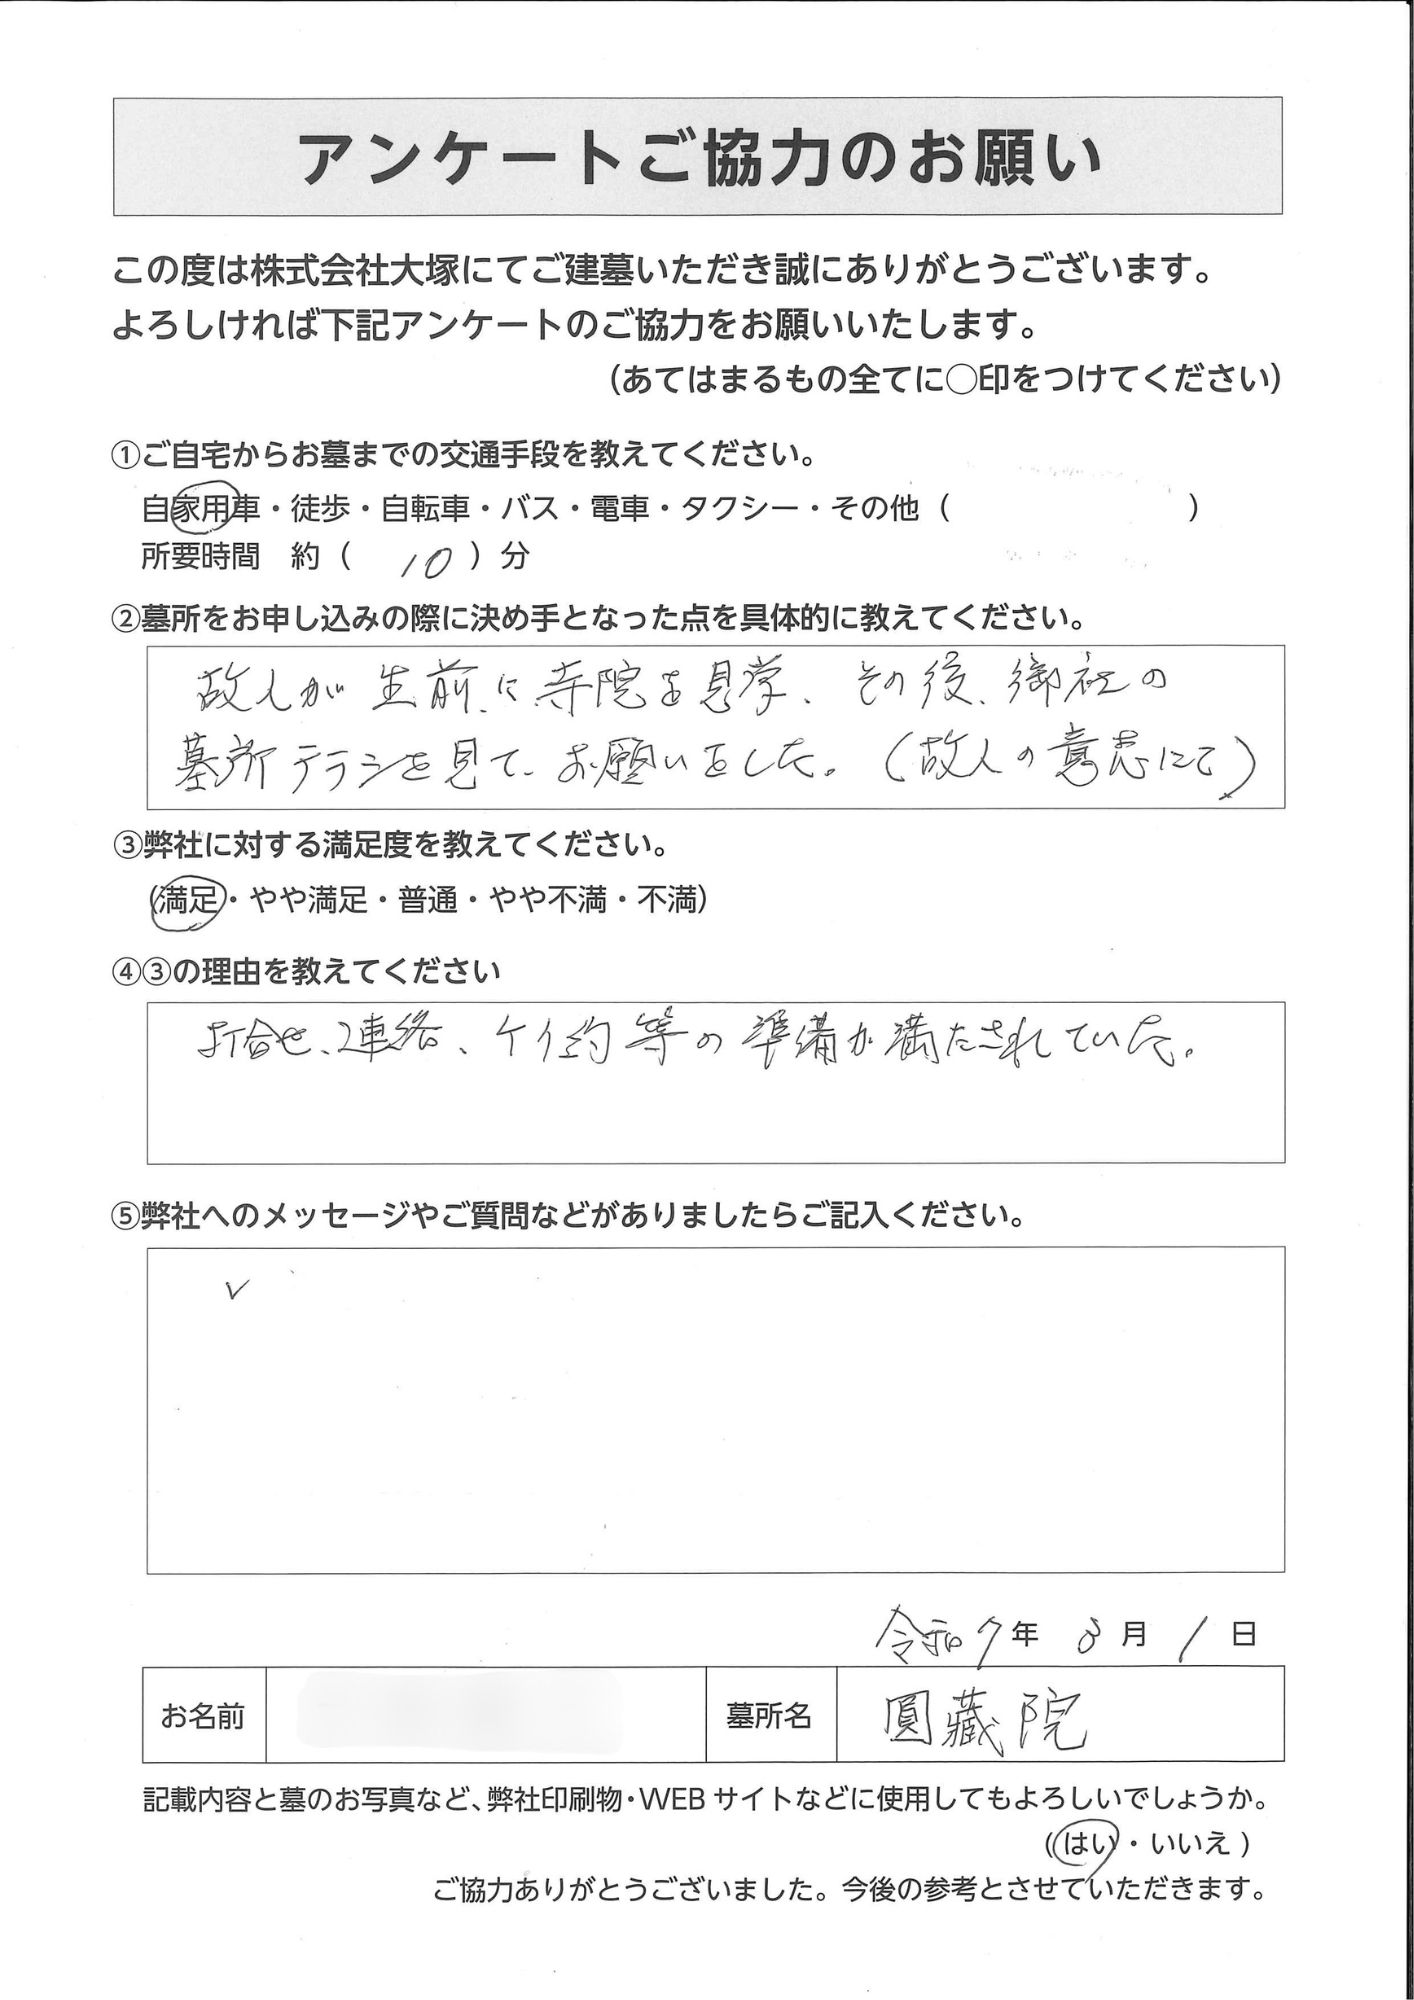 アンケートご協力のお願い
この度は株式会社大塚にてご建墓いただき誠にありがとうございます。
よろしければ下記アンケートのご協力をお願いいたします。
(あてはまるもの全てに○印をつけてください)
①ご自宅からお墓までの交通手段を教えてください。
自家用車・徒歩・自転車・バス・電車・タクシー・その他（　　　　　　　　）
所要時間　約（　10　）分
②墓所をお申し込みの際に決め手となった点を具体的に教えてください。
故人が生前に寺院を見学、その後、御社の
墓所チラシを見て、お願いをした。（故人の意志にて）
③弊社に対する満足度を教えてください。
(満足・やや満足・普通・やや不満・不満)
④③の理由を教えてください
打合せ、連絡、ケイ約等の準備が満たされていた。
⑤弊社へのメッセージやご質問などがありましたらご記入ください。
令和7年 3月 1日
お名前　墓所名　圓藏院
記載内容と墓のお写真など、弊社印刷物・WEBサイトなどに使用してもよろしいでしょうか。
(はい・いいえ)
ご協力ありがとうございました。今後の参考とさせていただきます。